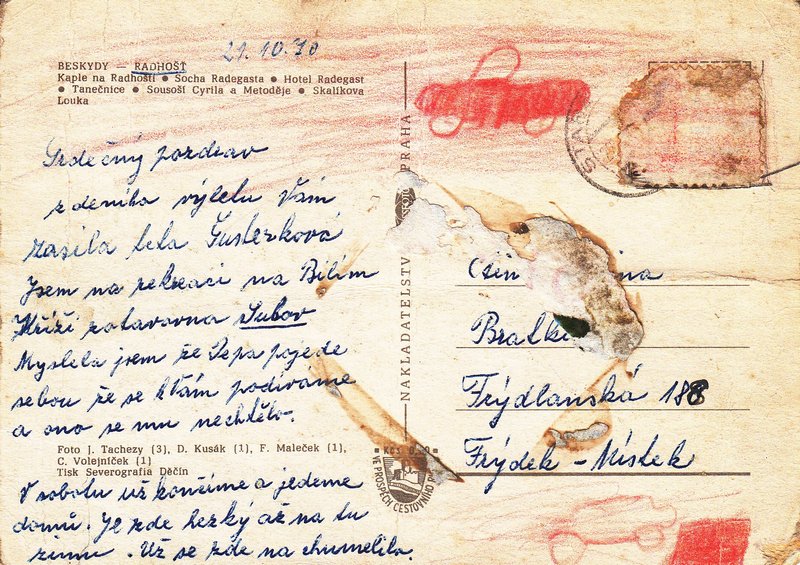 21.10.70
BESKYDY — RADHOŠŤ
Kaple na Radhošti ● Socha Radegasta ● Hotel Radegast
● Tanečnice ● Sousoší Cyrila a Metoděje ● Skalíkova
Louka
Srdečný pozdrav
z deního výletu Vám
zasílá teta Gusterková
Jsem na rekreaci na Bílím
Kříži zotavovna Subov
Myslela jsem že Pepa pojede
sebou že se k Vám podíváme
a ono se mu nechtělo.
Foto J. Tachezy (3), D. Kusák (1), F. Maleček (1),
C. Volejníček (1)
Tisk Severografia Děčín
V sobotu už končíme a jedeme
domů. Je zde hezký až na tu
zimu. Už se zde na chumelilo.
NAKLADATELSTV
PRAHA
Kčs
VE PROSPĚCH CESTOVNÍHO
STAR
Frýdlanská 188
Frýdek - Místek